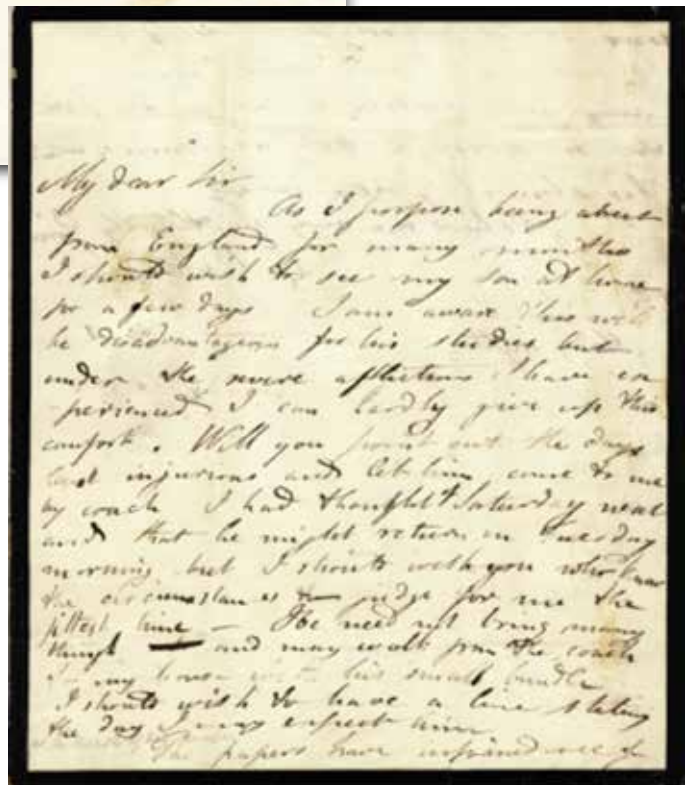 My dear Sir
As I propose being absent
from England for many months
I should wish to see my son at home
for a few days I am aware this will
be disadvantageous for his studies but
under the severe afflictions I have ex
-perienced I can hardly give up this
comfort. Will you point out the days
least injurious and let him come to me
by coach I had thought of Saturday next
and that he might return on Tuesday
morning but I should wish you who know
the circumstances to judge for me the
fittest time — He need not bring many
things and may walk from the coach
to my house with his small bundle
I should wish to have a line stating
the day I may expect him
The papers have informed me of